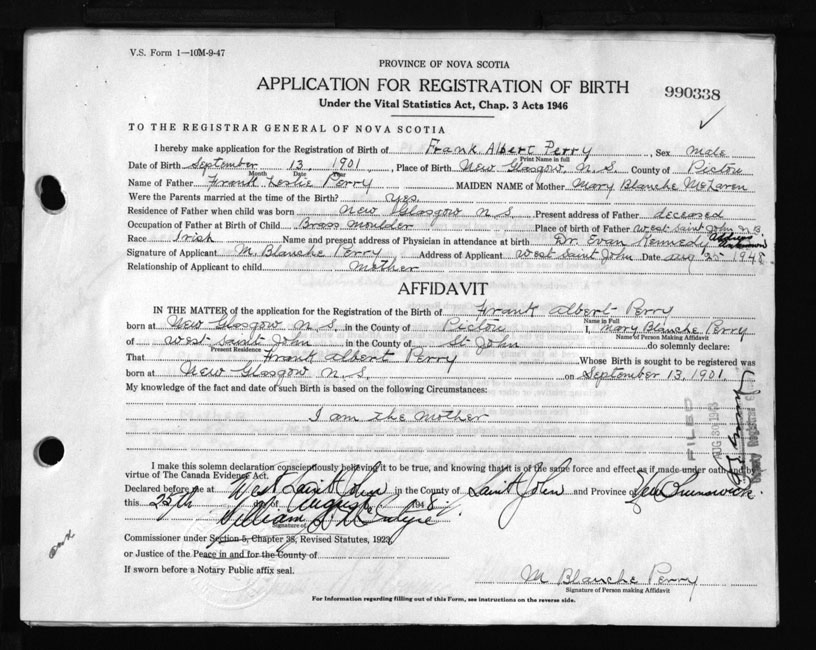 V.S. Form 1—10M-9-47
PROVINCE OF NOVA SCOTIA
APPLICATION FOR REGISTRATION OF BIRTH
990338
Under the Vital Statistics Act, Chap. 3 Acts 1946
TO THE REGISTRAR GENERAL OF NOVA SCOTIA
I hereby make application for the Registration of Birth of Frank Albert Perry, Sex Male
Print Name in full
Date of Birth September 13, 1901, Place of Birth New Glasgow, N.S. County of Pictou
Month Date Year
Name of Father Frank Leslie Perry MAIDEN NAME of Mother Mary Blanche McLaren
Were the Parents married at the time of the Birth? Yes.
Residence of Father when child was born New Glasgow N S Present address of Father deceased
Occupation of Father at Birth of Child Brass Moulder Place of birth of Father West Saint John N.B.
Race Irish Name and present address of Physician in attendance at birth Dr. Evan Kennedy address unknown
Signature of Applicant M. Blanche Perry Address of Applicant West Saint John Date Aug 25 1948
Relationship of Applicant to child Mother
AFFIDAVIT
IN THE MATTER of the application for the Registration of the Birth of Frank Albert Perry
Name in Full
born at New Glasgow N.S. in the County of Pictou I, Mary Blanche Perry
Name of Person Making Affidavit
of West Saint John in the County of St John do solemnly declare:
Present Residence
That Frank Albert Perry Whose Birth is sought to be registered was
born at New Glasgow N.S. on September 13, 1901.
My knowledge of the fact and date of such Birth is based on the following Circumstances:
I am the Mother
FILED
AUG 30 1948
I make this solemn declaration conscientiously believing it to be true, and knowing that it is of the same force and effect as if made under oath and by
virtue of The Canada Evidence Act.
Declared before me at West Saint John in the County of Saint John and Province of New Brunswick.
this 25th day of August 1948.
Signature of
Commissioner under Section 5, Chapter 38, Revised Statutes, 1923
or Justice of the Peace in and for the County of
If sworn before a Notary Public affix seal.
M Blanche Perry
Signature of Person making Affidavit
For Information regarding filling out of this Form, see instructions on the reverse side.